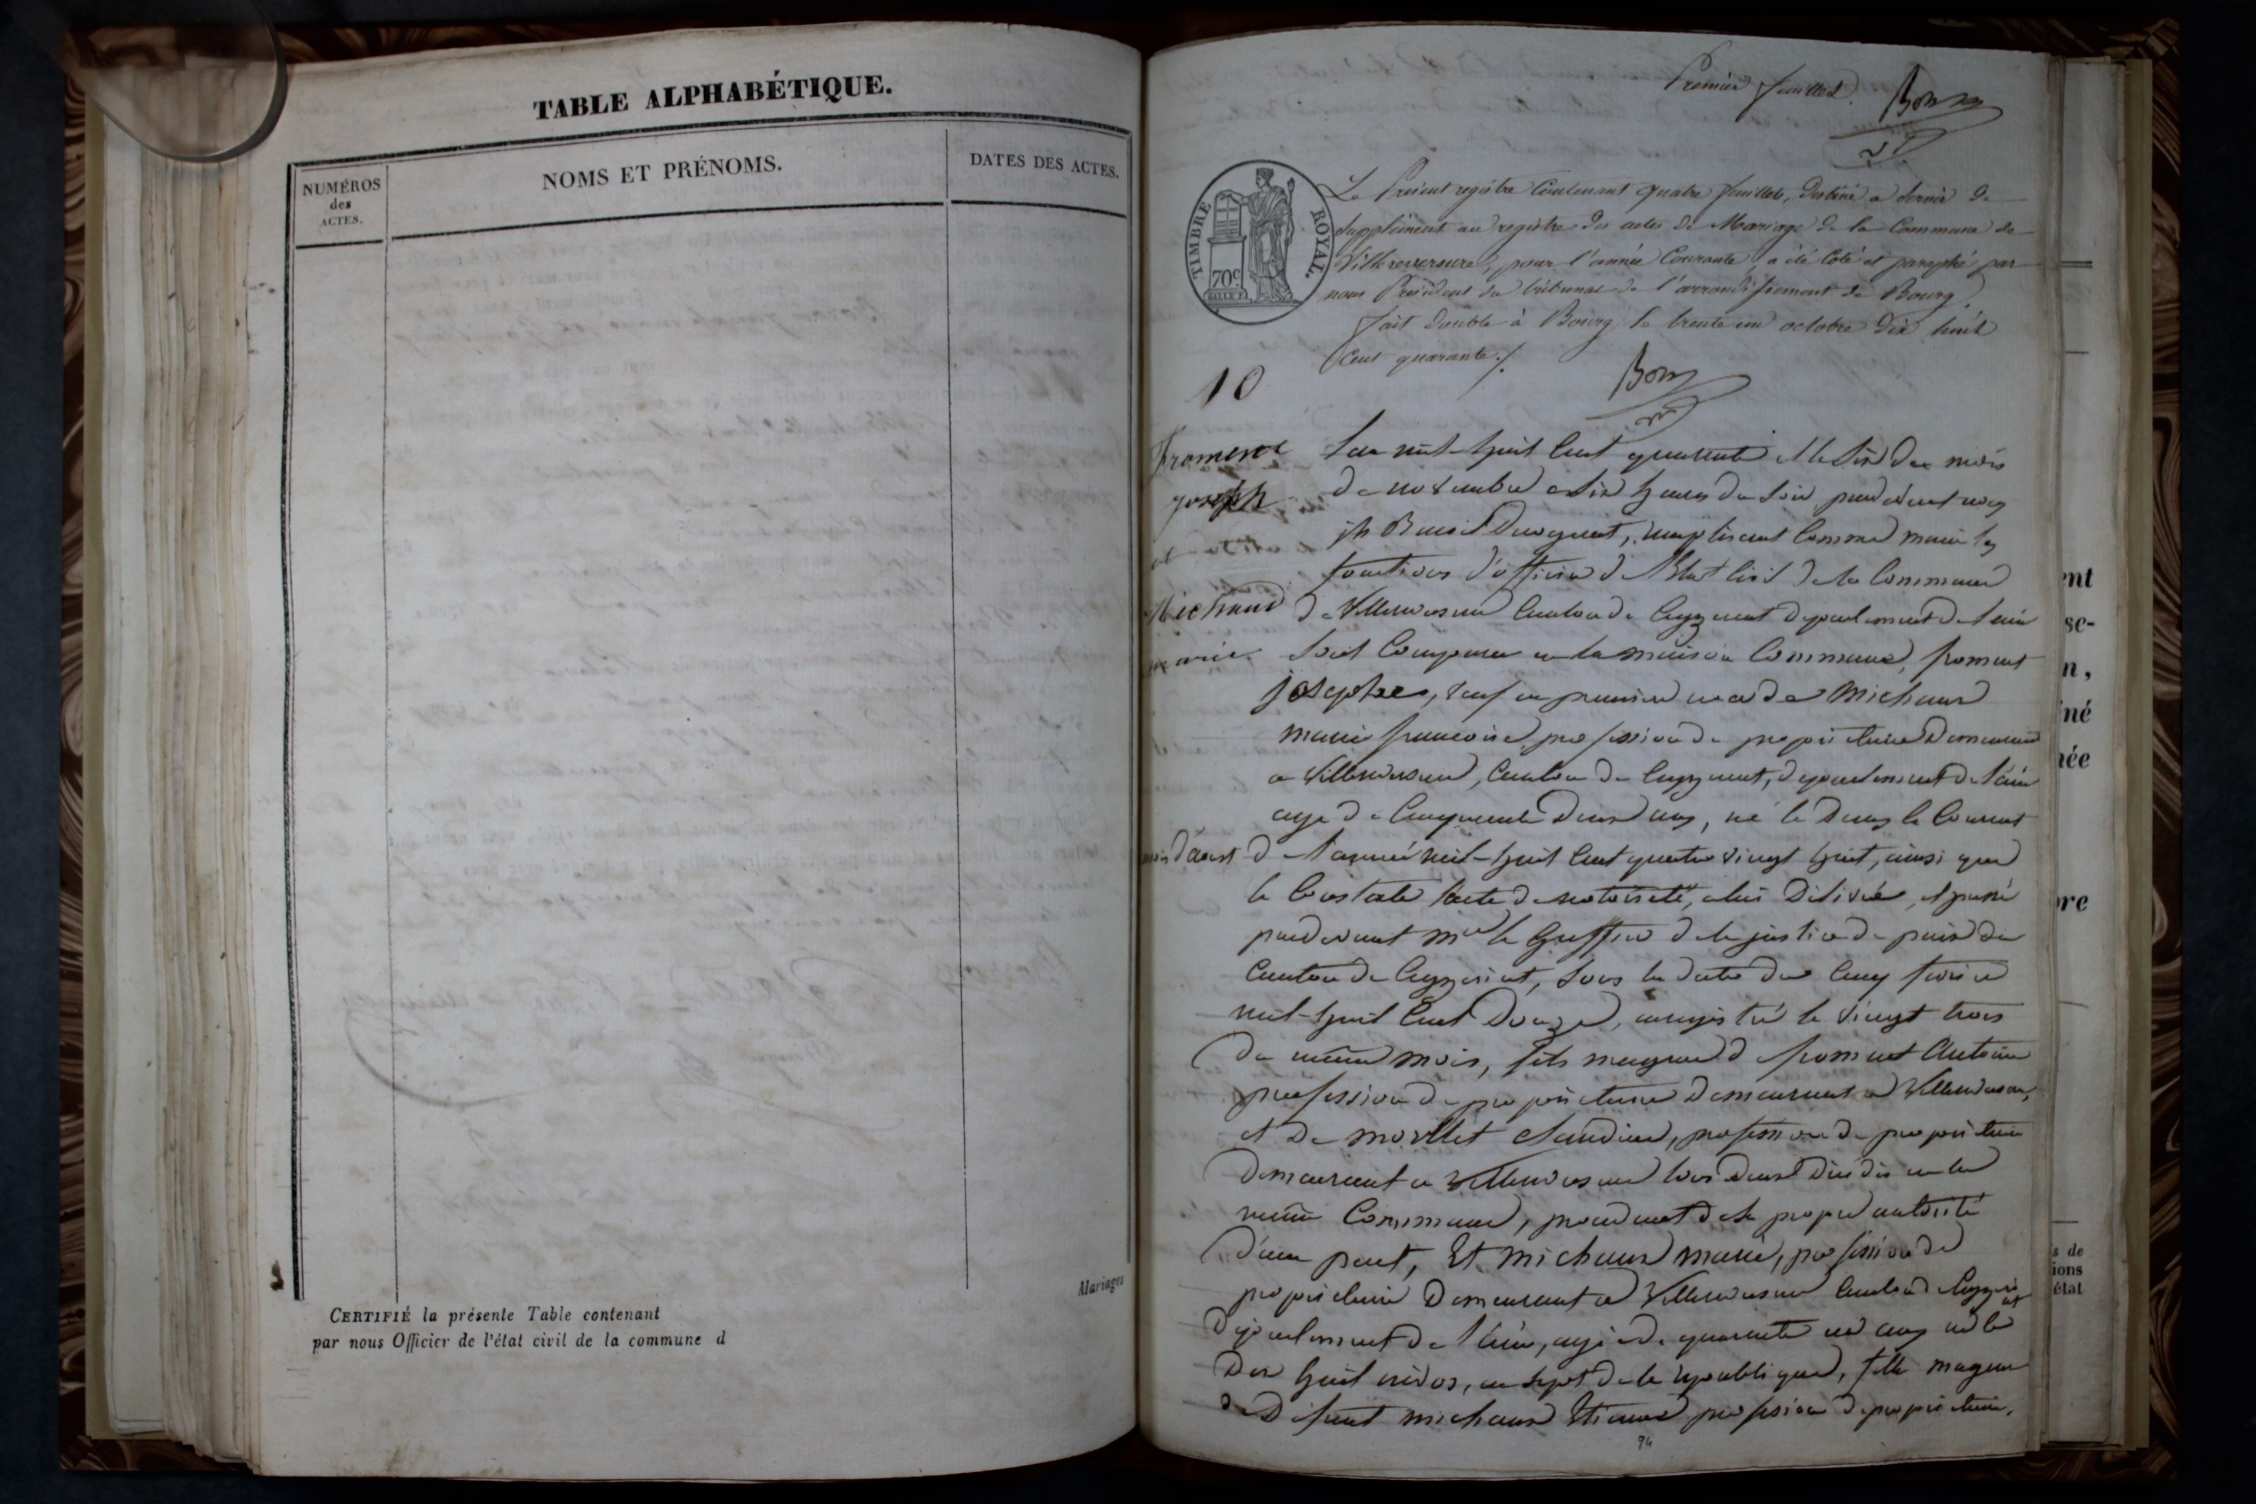 TABLE ALPHABÉTIQUE.
NUMÉROS
des
ACTES.
NOMS ET PRÉNOMS.
DATES DES ACTES.
Mariages
CERTIFIÉ la présente Table contenant
par nous Officier de l'état civil de la commune d
Premier feuillet.
TIMBRE ROYAL.
70c
Le Présent registre Contenant quatre feuillets, destiné a servir de
Supplément au registre des actes de Mariage de la Commune de
Villereversure, pour l'année Courante, a été Coté et paraphé par
nous Président du tribunal de l'arrondissement de Bourg.
fait double à Bourg le trente un octobre dix huit
Cent quarante ./.
10
froment
joseph
et
Michaud
marie
L'an mil-huit Cent quarante et le Six du mois
de novembre a Six heures du Soir pardevant nous
remplissant Comme maire les
fonctions d'officier de l'Etat Civil de la Commune
de Villereversure Canton de Ceyzeriat departement de l'ain
Sont Comparu en la maison Commune, froment
josephe, veuf en premiere noce de Michaud
marie francoise profession de propriétaire Demeurant
a Villereversure, Canton de Ceyzeriat, departement de l'ain
agé de Cinquante Deux ans, né le Deux le Courant
mois d'aoust
de l'année mil-huit Cent quatre vingt huit, ainsi que
le Constate l'acte de notorieté, a lui Délivré, et passé
pardevant mr le Greffier de la justice de paix du
Canton de Ceyzeriat, Sous la date du Cinq fevrier
mil-huit Cent Douze, enregistré le vingt trois
du même mois, fils mageur de froment Antoine
profession de propriétaire Demeurant a Villereversure,
et De morllet Claudine, profession de propriétaire
Demeurant a Villereversure tous deux décédés en la
même Commune, procedant de sa propre autorité
d'une part, Et michaud marie, profession de
propriétaire Demeurant a Villereversure Canton de Ceyzeriat
Departement de l'ain, agée de quarante un ans née le
Dix huit nivos, an Sept de la republique, fille mageur
de Défunt michaud Etienne profession de propriétaire,
94